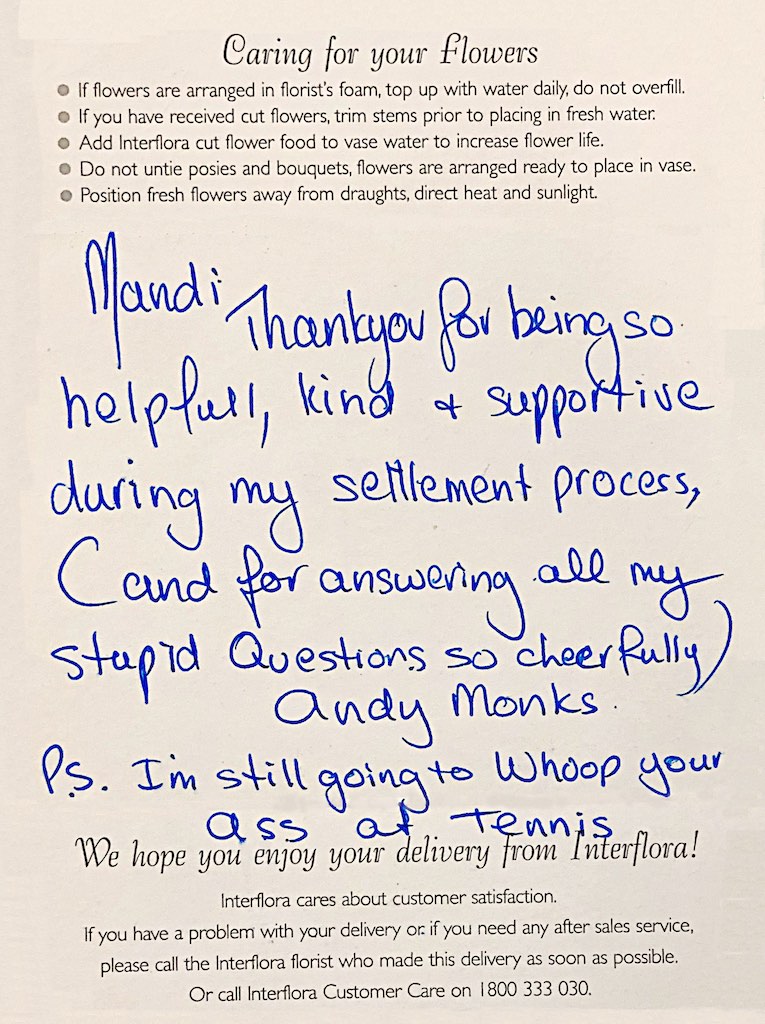 Caring for your Flowers
If flowers are arranged in florist's foam, top up with water daily, do not overfill.
If you have received cut flowers, trim stems prior to placing in fresh water.
Add Interflora cut flower food to vase water to increase flower life.
Do not untie posies and bouquets, flowers are arranged ready to place in vase.
Position fresh flowers away from draughts, direct heat and sunlight.
Mandi
Thankyou for being so
helpfull, kind & supportive
during my settlement process,
(and for answering all my
stupid Questions so cheerfully)
Andy Monks.
P.S. I'm still going to Whoop your
ass at Tennis
We hope you enjoy your delivery from Interflora!
Interflora cares about customer satisfaction.
If you have a problem with your delivery or if you need any after sales service,
please call the Interflora florist who made this delivery as soon as possible.
Or call Interflora Customer Care on 1800 333 030.